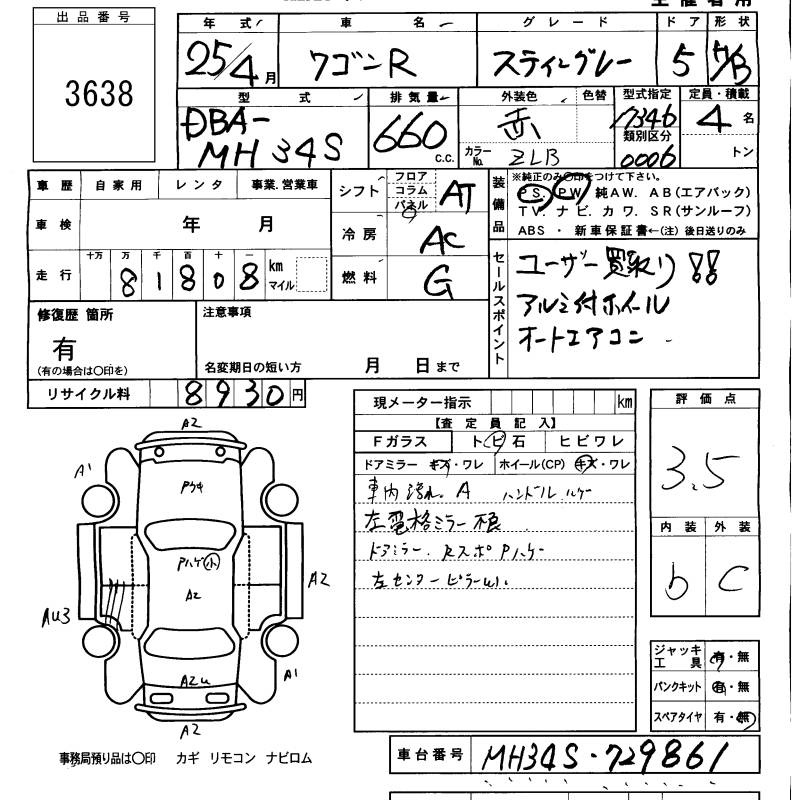 出品番号
3638
年式 車名 グレード ドア 形状
25/4月 ワゴンR スティングレー 5 /B
型式 排気量 外装色 色替 型式指定 定員・積載
DBA-MH34S 660 C.C. 赤 カラーNo. ZLB 17346 類別区分 0006 4名 トン
車歴 自家用 レンタ 事業.営業車
車検 年 月
走行 十万 万 千 百 十 一
81808 km マイル
シフト フロア コラム パネル AT
冷房 AC
燃料 G
装備品 ※純正のみ〇印をつけて下さい。
PS. PW. 純AW. AB(エアバック)
TV. ナビ. カワ. SR(サンルーフ)
ABS ・ 新車保証書←(注) 後日送りのみ
セールスポイント
ユーザー買取り!!
アルミ付ホイール
オートエアコン
修復歴 箇所
有
(有の場合は〇印を)
注意事項
名変期日の短い方 月 日まで
リサイクル料 8930円
現メーター指示 km
【査定員記入】
Fガラス トビ石 ヒビワレ
ドアミラー キズ・ワレ ホイール(CP) キズ・ワレ
車内汚れ A ハンドルハゲ
左電格ミラー不良
ドアミラー. RスポPハゲ
左センターピラー
評価点
3.5
内装 外装
b C
A2
A1
Pハゲ(小)
A2
A2
AU3
A2u
A1
A2
ジャッキ 工具 有・無
パンクキット 有・無
スペアタイヤ 有・無
事務局預り品は〇印 カギ リモコン ナビロム
車台番号 MH34S-729861